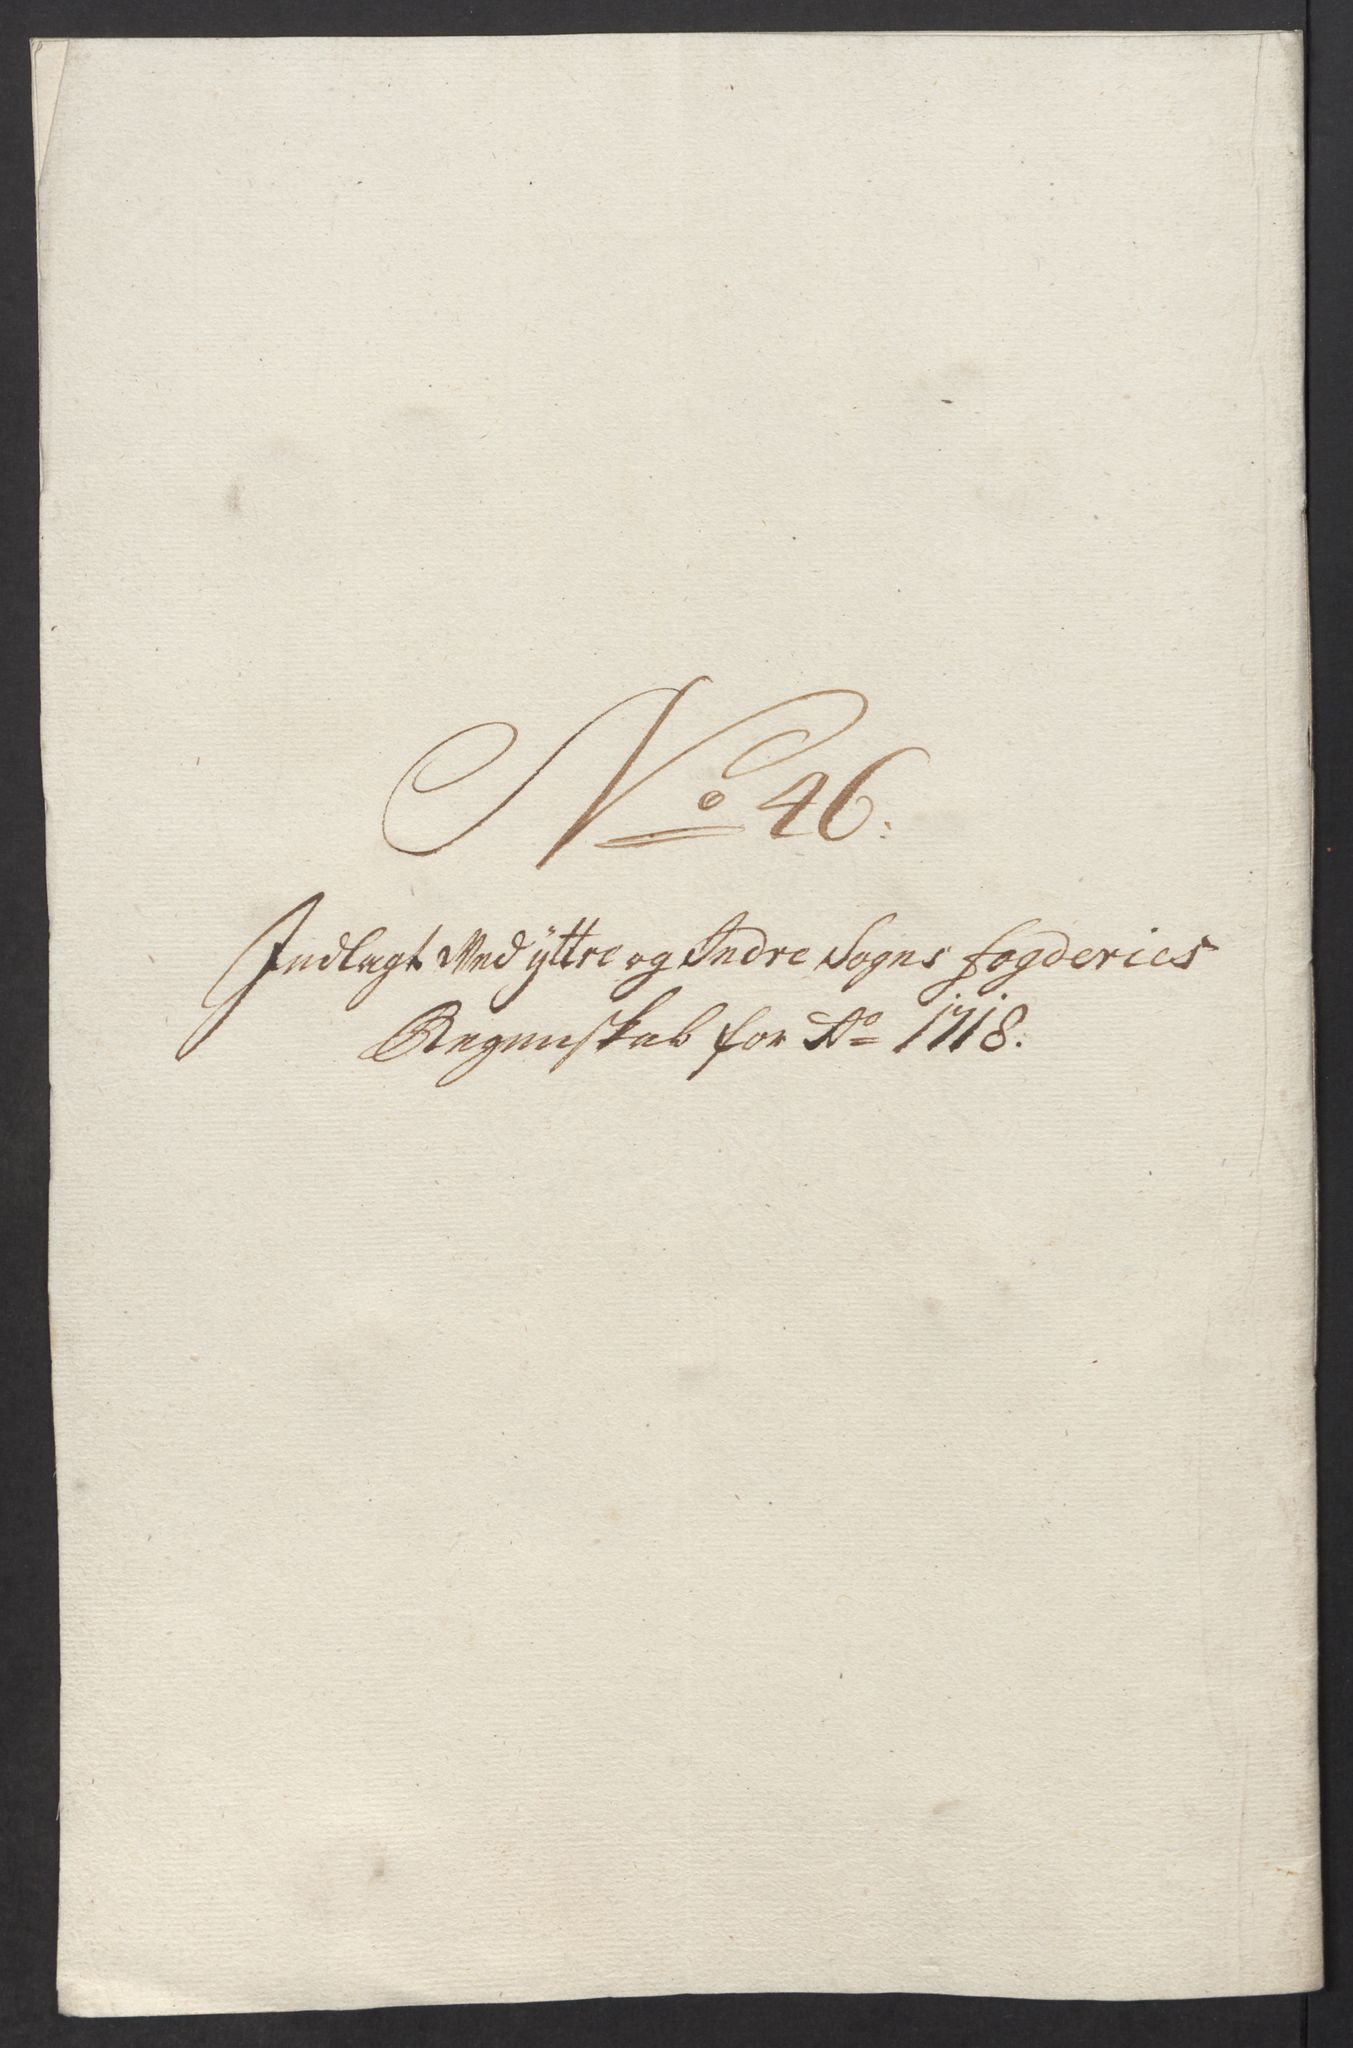 No 46.
Indlagt Ved ÿttre og Indre Sogns fogderies
Regenskab for Ao 1718.